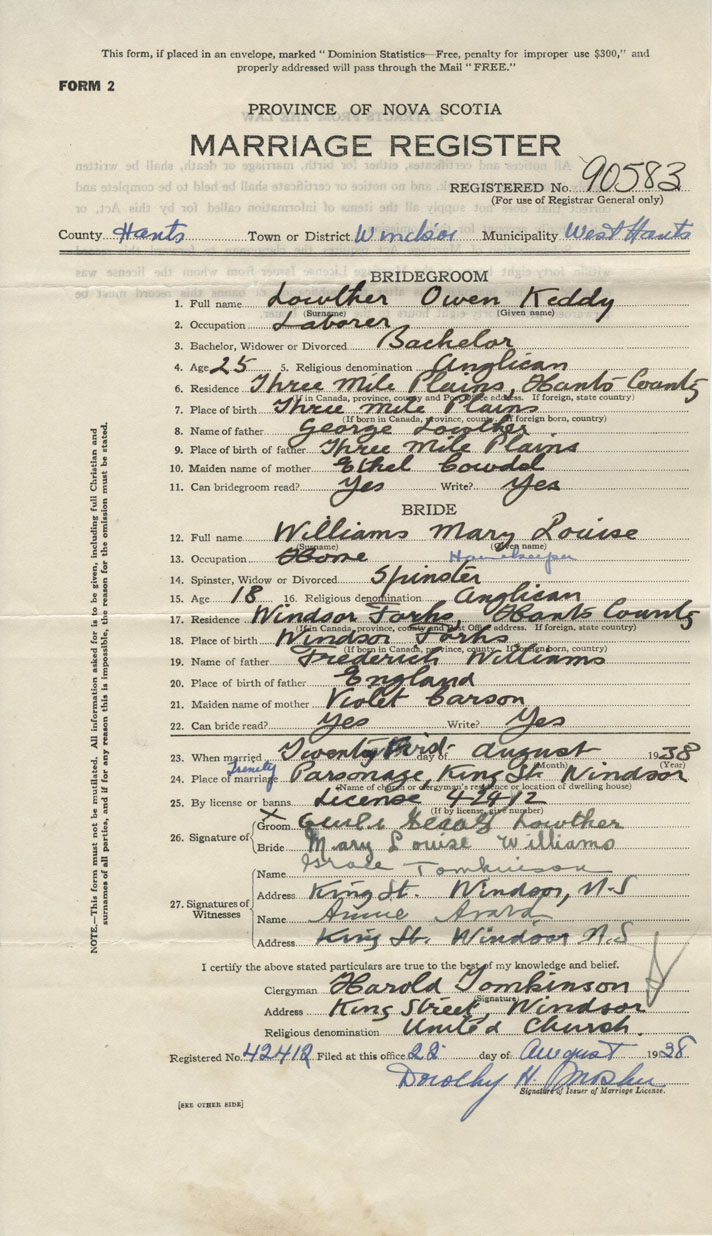 This form, if placed in an envelope, marked "Dominion Statistics—Free, penalty for improper use $300," and
properly addressed will pass through the Mail "FREE."
FORM 2
PROVINCE OF NOVA SCOTIA
MARRIAGE REGISTER
REGISTERED No. 90583
(For use of Registrar General only)
County Hants Town or District Windsor Municipality West Hants
BRIDEGROOM
1. Full name Lowther Owen Keddy
(Surname) (Given name)
2. Occupation Laborer
3. Bachelor, Widower or Divorced Bachelor
4. Age 25 5. Religious denomination Anglican
6. Residence Three Mile Plains, Hants County
(If in Canada, province, county and Post Office address. If foreign, state country)
7. Place of birth Three mile Plains
(If born in Canada, province, county. If foreign born, country)
8. Name of father George Lowther
9. Place of birth of father Three Mile Plains
10. Maiden name of mother Ethel
11. Can bridegroom read? Yes Write? Yes
BRIDE
12. Full name Williams Mary Louise
(Surname) (Given name)
13. Occupation Housekeeper
14. Spinster, Widow or Divorced Spinster
15. Age 18 16. Religious denomination Anglican
17. Residence Windsor Forks, Hants County
(If in Canada, province, county and Post Office address. If foreign, state country)
18. Place of birth Windsor Forks
(If born in Canada, province, county. If foreign born, country)
19. Name of father Frederick Williams
20. Place of birth of father England
21. Maiden name of mother Violet Carson
22. Can bride read? Yes Write? Yes
23. When married Twenty third day of August 1938
(Month) (Year)
24. Place of marriage Trinity Parsonage, King St. Windsor
(Name of church or clergyman's residence or location of dwelling house)
25. By license or banns License 42412
(If by license, give number)
26. Signature of
Groom X Lowther
Bride Mary Louise Williams
27. Signatures of Witnesses
Name Grace Tomkinson
Address King St. Windsor, N.S
Name Annie Avard
Address King St. Windsor N.S
I certify the above stated particulars are true to the best of my knowledge and belief.
Clergyman Harold Tomkinson
(Signature)
Address King Street, Windsor
Religious denomination United Church.
Registered No. 42412 Filed at this office 22 day of August 1938
Dorothy H. Mosher
Signature of Issuer of Marriage License.
[SEE OTHER SIDE]
NOTE.—This form must not be mutilated. All information asked for is to be given, including full Christian and
surnames of all parties, and if for any reason this is impossible, the reason for the omission must be stated.